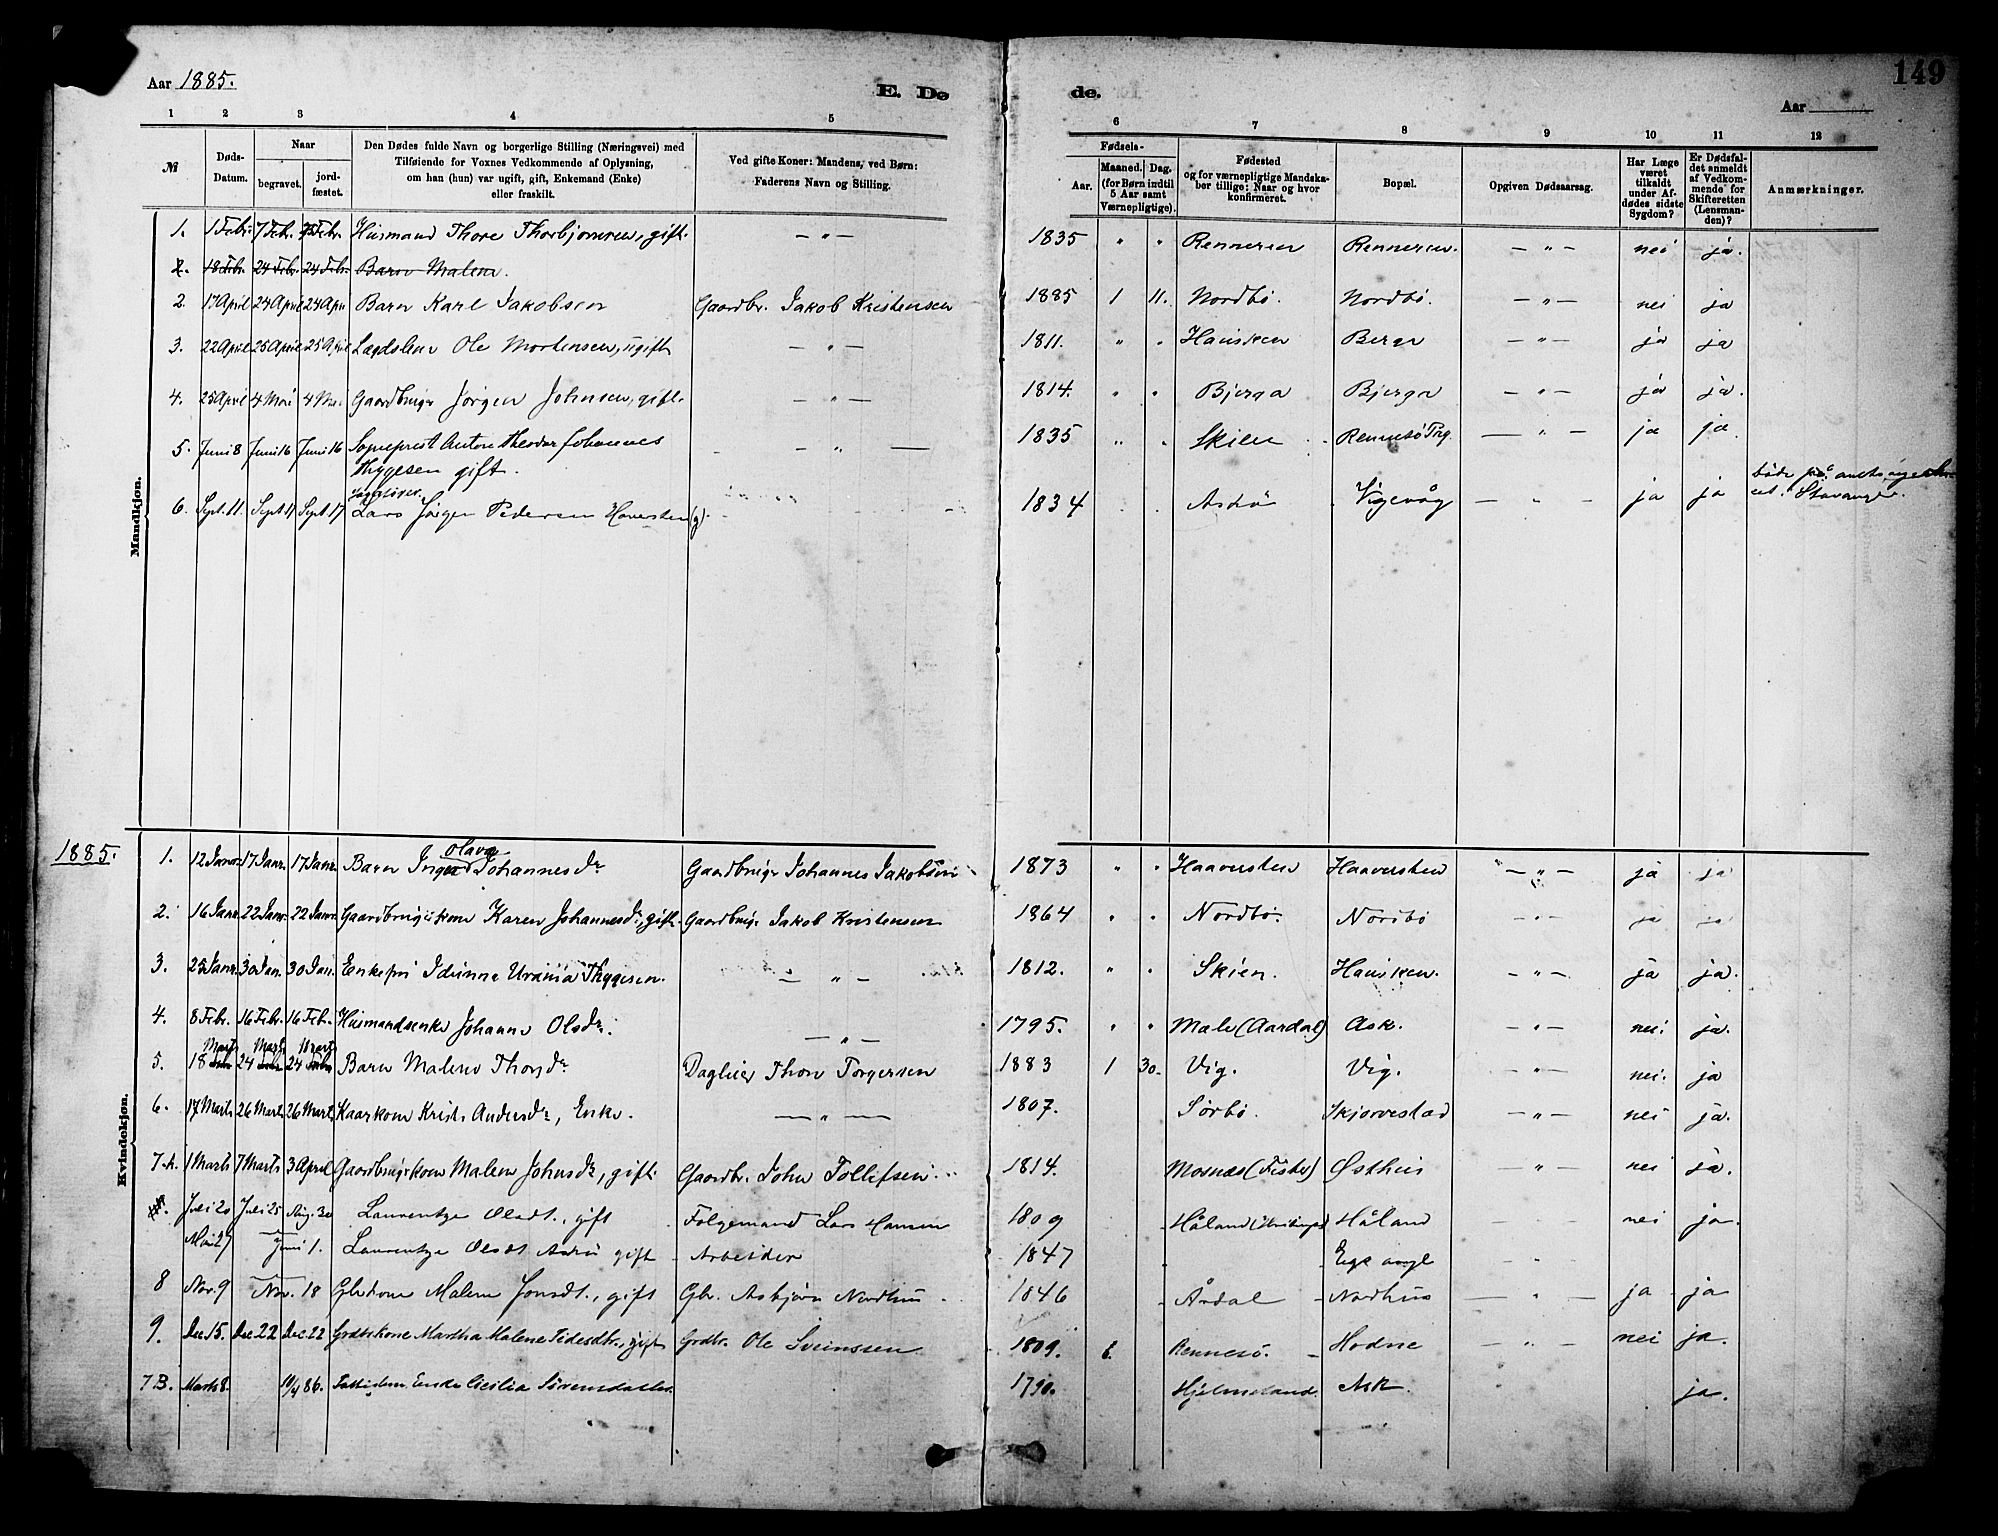 149
Aar 1885.
E. Dø
de.
Aar
1 2 3 4 5 6 7 8 9 10 11 12
№
Døds-Datum.
Naar
begravet.
jord-fæstet.
Den Dødes fulde Navn og borgerlige Stilling (Næringsvei) med
Tilføiende for Voxnes Vedkommende af Oplysning,
om han (hun) var ugift, gift, Enkemand (Enke)
eller fraskilt.
Ved gifte Koner: Mandens, ved Børn:
Faderens Navn og Stilling.
Fødsels-
Aar.
Maaned. Dag.
(for Børn indtil
5 Aar samt
Værnepligtige).
Fødested
og for værnepligtige Mandska-
ber tillige: Naar og hvor
konfirmeret.
Bopæl.
Opgiven Dødsaarsag.
Har Læge
været
tilkaldt
under Af-
dødes sidste
Sygdom?
Er Dødsfal-
det anmeldt
af Vedkom-
mende for
Skifteretten
(Lensman-
den)?
Anmærkninger.
Mandkjøn.
1. 1 Febr. 7 Febr. Febr. Husmand Thore Thorbjørnsen, gift. — " — 1835 " " Renneren Renneren. — " — nei ja.
2. 18 Febr. 24 Febr. 24 Feb. Barn Malene.
2. 17 April 24 April 24 Apr Barn Karl Jakobsen Gaardbr. Jakob Kristensen 1885 1 11. Nordbö. Nordbö. — " — nei ja
3. 22 April 25 April 25 April Lægdslem Ole Mortensen, ugift — " — 1811. " " Hausken Berge — " — ja ja
4. 25 April 4 Mai 4 Mai Gaardbruger Jørgen Johnsen, gift. — " — 1814. " " Bjerga Bjerga — " — ja ja.
5. Juni 8 Juni 16 Juni 16 Sogneprest Anton Theodor Johannes — " — 1835 " " Skien Rennesö Prg. — " — ja ja.
Thygesen gift.
6. Sept. 11. Sept. 17 Sept. 17 Lars Jörgen Pedersen Haversten (g). 1834 Askö Vigevåg — " — ja ja både på
Stavanger.
1885.
Kvindekjøn.
1. 12 Janr. 17 Janr. 17 Janr. Barn Inger Olava Johannesdr. Gaardbruger Johannes Jakobsen 1873 " " Haaversten Haaversten — " — ja ja
2. 16 Janr. 22 Janr. 22 Janr. Gaardbrugerkone Karen Johannesdr., gift. Gaardbruger Jakob Kristensen 1864 " " Nordbö. Nordbö — " — ja ja
3. 25 Janr. 30 Jan. 30 Jan. Enkefru Idunna Urania Thygesen. — " — 1812. " " Skien. Hausken. — " — ja ja.
4. 8 Febr. 16 Febr. 16 Febr. Husmandsenke Johanne Olsdr. — " — 1795. " " Male (Aardal) Ask. — " — nei ja.
Marts Marts Marts
5. 18 Feb. 24 Feb. 24 Feb. Barn Malene Thorsdr. Dagleier Thore Torgersen 1883 1 30. Vig. Vig. — " — nei. ja
6. 17 Marts 26 Marts 26 Marts Kaarkone Kristi Andersdr., Enke. — " — 1807. Sörbö. Skjörvestad — " — nei ja.
7.A. 1 Marts 7 Marts 3 April Gaardbrugerkone Malene Johnsdr., gift. Gaardbr. John Tollefsen 1814. Mosnæs (Fister) Østhus — " — nei ja.
Juli 20 Juli 25 Aug. 30 Laurentze Olsdt., gift Folgemand Lars Hansen 1809 Håland Håland — nei ja.
Mai 27 Juni 1. Laurentze Olsdt Askö gift Arbeider 1847
8 Nov. 9 Nov. 18 Gbrkone Malene Jonsdt., gift Gbr. Asbjörn Nordhus 1846 Årdal Nordhus — " — ja ja
9. Dec. 15. Dec 22 Dec. 22 Grdbrkone Martha Malene Pedersdtr., gift Grdbr. Ole Sveinssen 1809. 6. Rennesö. Hodne — " — nei ja.
7B. Marts 8. 10/4 86. Enke Cicilia Sörensdatter. 1790. Hjelmeland Ask. ja.